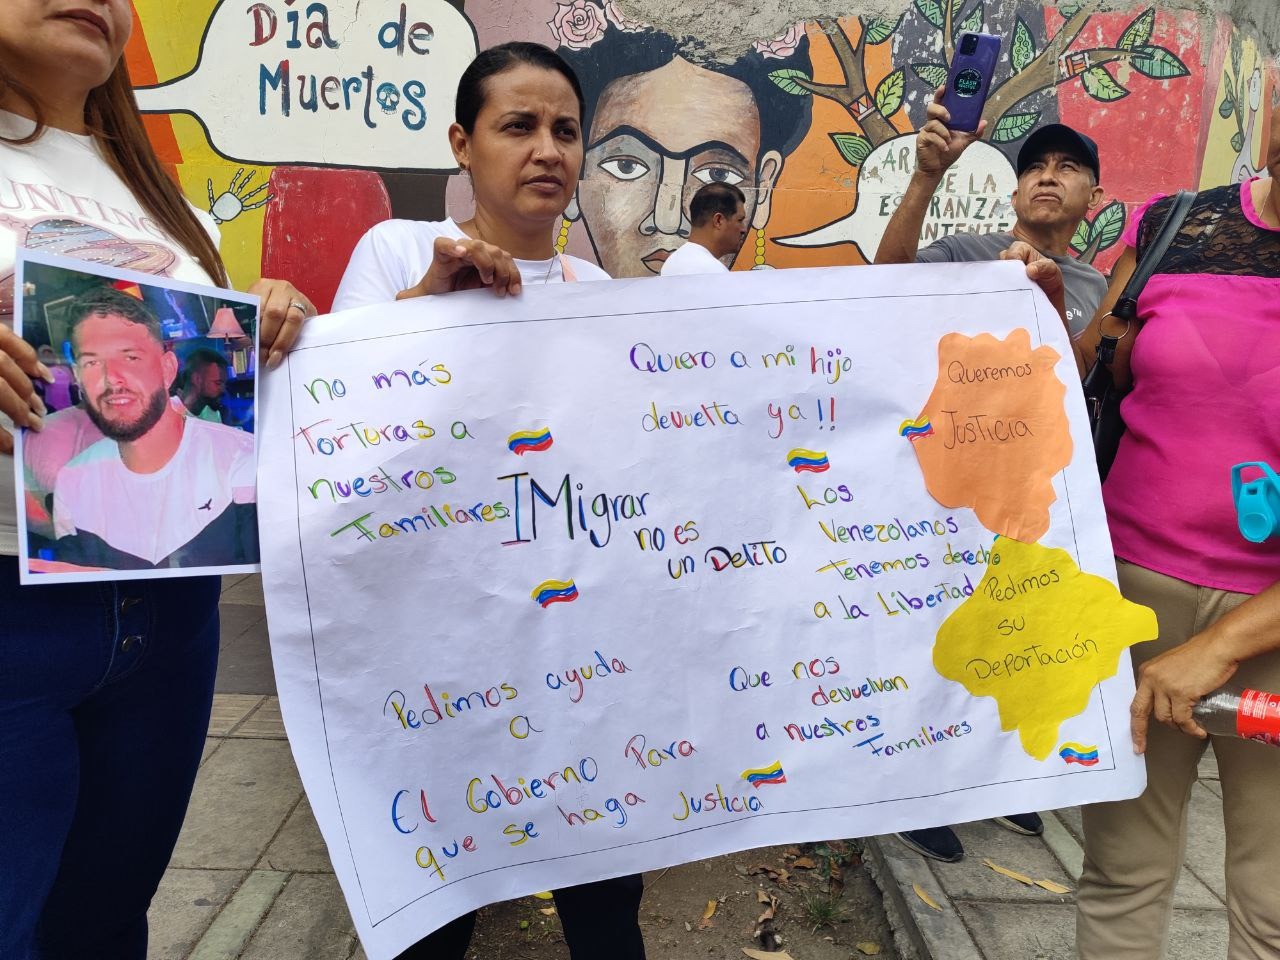 Día de
Muertos
UNTING
ÁR
DE LA
ESPERANZA
no más
Torturas a
nuestros
Familiares
IMigrar
no es
un Delito
Quiero a mi hijo
devuelta ya!!
Los
Venezolanos
tenemos derecho
a la Libertad
Queremos
Justicia
Pedimos
su
Deportación
Pedimos ayuda
a
El Gobierno Para
que se haga Justicia
Que nos
devuelvan
a nuestros
Familiares